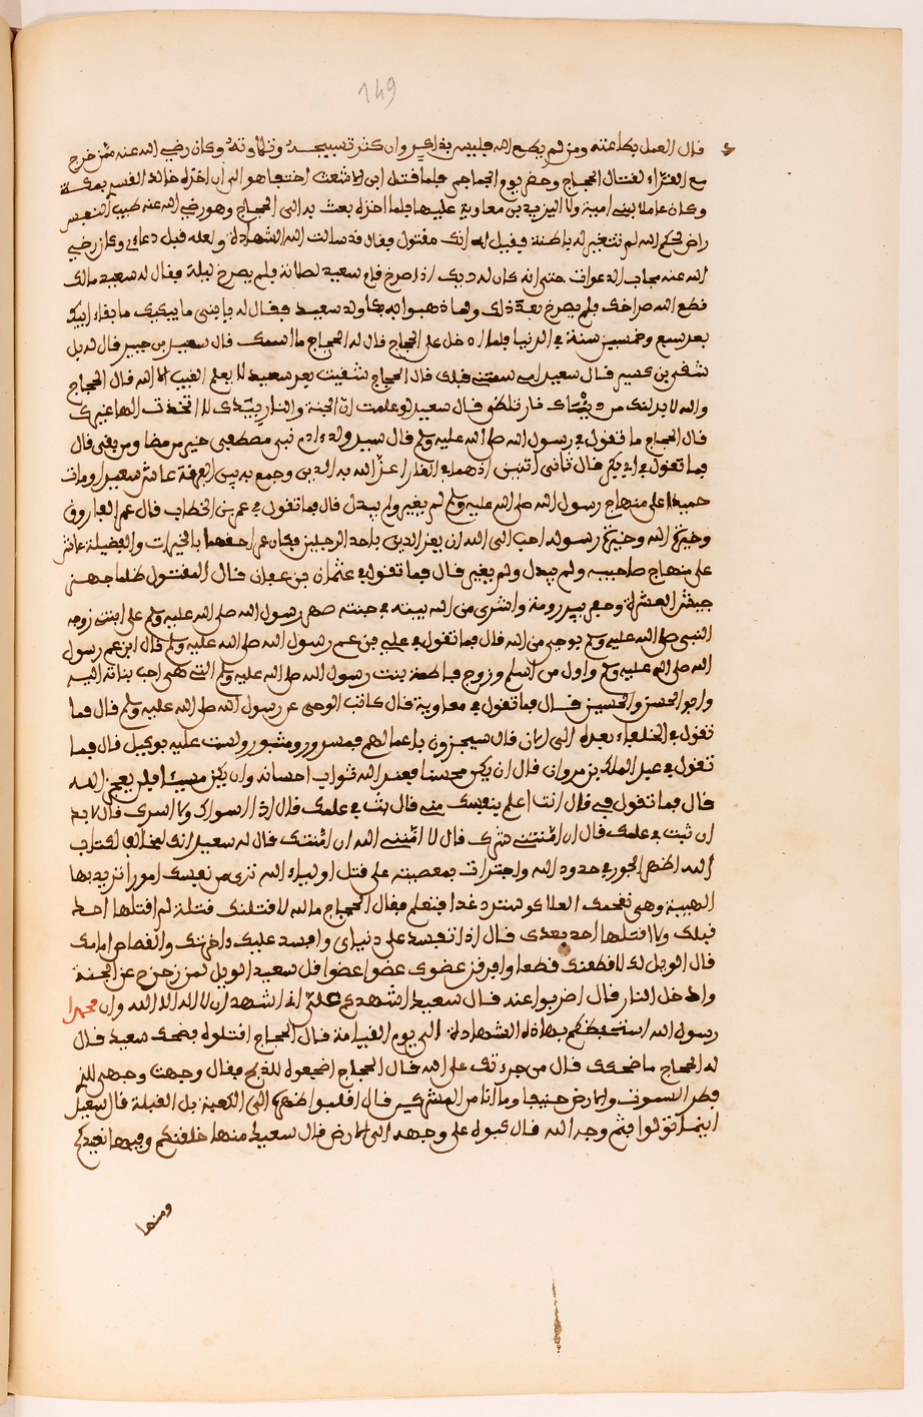 149
قال العمل بطاعته ومن لم يطع الله فليس بذاكر وان كثر تسبيحه وتلاوته وكان رضي الله عنه ممن خرج
مع القراء لقتال الحجاج وحضر يوم الجماجم فلما قتل ابن الاشعث اختفا هو الى ان اخذه خالد القسر بمكة
وكان عاملا لبني امية ولا اليزيد بن معاوية عليها فلما اخذه بعث به الى الحجاج وهو رضي الله عنه طيب النفس
راض لحكم الله لم تتغير له باطنة فقيل له انك مقتول فقال قد سالت الله الشهادة ولعله قبل دعاءي وكان رضي
الله عنه مجاب الدعوات حتى انه كان له ديك اذا صرخ قام سعيد لصلاته فلم يصرخ ليلة فقال له سعيد مالك
قطع الله صراخك فلم يصرخ بعد ذلك ولما ذهبوا به بكا ولد سعيد فقال له يا بني ما يبكيك ما بقاء ابيك
بعد سبع وخمسين سنة في الدنيا فلما دخل على الحجاج قال له الحجاج ما اسمك قال سعيد بن جبير قال له بل
شقي بن كسير قال سعيد امي سمتني قبلك قال الحجاج شقيت يعر سعيد لا يعلم الغيب الا الله قال الحجاج
والله لا بدلنك من دنياك نار تلظى قال سعيد لو علمت ان الجنة والنار بيدك لا اتخذت الها غيرك
قال الحجاج ما تقول في رسول الله صلى الله عليه وسلم قال سيد ولد ادم نبي مصطفى خير من مضا ومن بقى قال
فما تقول في ابي بكر قال ثاني اثنين اذ هما في الغار اعز الله به الدين وجمع به بين الفرقة عاش سعيدا ومات
حميدا على منهاج رسول الله صلى الله عليه وسلم لم يغير ولم يبدل قال فما تقول في عمر بن الخطاب قال عمر الفاروق
وخيرة الله وخيرة رسوله احب الى الله ان يعز الدين باحد الرجلين فكان عمر احقهما بالخيرات والفضيلة عاش
على منهاج صاحبيه ولم يبدل ولم يغير قال فما تقول في عثمان بن عفان قال المقتول ظلما جهز
جيش العسرة وحفر بير رومة واشترى من الله بيته في جنته صهر رسول الله صلى الله عليه وسلم على ابنتيه زوجه
النبي صلى الله عليه وسلم بوحي من الله قال فما تقول في علي بن عم رسول الله صلى الله عليه وسلم قال ابن عم رسول
الله صلى الله عليه وسلم واول من اسلم وزوج فاطمة بنت رسول الله صلى الله عليه وسلم التي هي احب بناته اليه
وابو الحسن والحسين قال فما تقول في معاوية قال كاتب الوحي عن رسول الله صلى الله عليه وسلم قال فما
تقول في الخلفاء بعده الى الان قال سيجزون باعمالهم فمسرور ومثبور ولست عليه بوكيل قال فما
تقول في عبد الملك بن مروان قال ان يكن محسنا فعند الله ثواب احسانه وان يكن مسيئا فلن يعجز الله
قال فما تقول في قال انت اعلم بنفسك مني قال بث في علمك قال اذا اسوءك ولا اسرك قال لا بد
ان تبث في علمك قال ان امنتني شرك قال لا امنني الله ان امنتك قال له سعيد انك لمخالف لكتاب
الله اظهر الجور في حدود الله واجترات بمعصيته على قتل اولياء الله ترى من نفسك امورا تريد بها
الهيبة وهي تقحمك الهلاك وسترد غدا فتعلم فقال الحجاج ما لله لاقتلنك قتلة لم اقتلها احدا
قبلك ولا اقتلها احدا بعدك قال اذا تفسد علي دنياي وافسد عليك داخرتك والقصاص امامك
قال الويل لك لاقطعنك قطعا وافرقن عضوك عضوا عضوا قل سعيد الويل لمن زحزح عن الجنة
وادخل النار قال اضربوا عنقه قال سعيد اشهدك علي اني اشهد ان لا اله الا الله وان محمدا
رسول الله استحفظكم بهاذه الشهادة الى يوم القيامة قال الحجاج اقتلوه فضحك سعيد قال
له الحجاج ما ضحكك قال من جرءتك على الله قال الحجاج اضجعوه للذبح فقال وجهت وجهي للذي
فطر السموت والارض حنيفا وما انا من المشركين قال اقلبوا ظهره الى الكعبة بل القبلة قال سعيد
اينما تولوا فثم وجه الله قال كبوه على وجهه الى الارض قال سعيد منها خلقنكم وفيها نعيدكم
ومنها